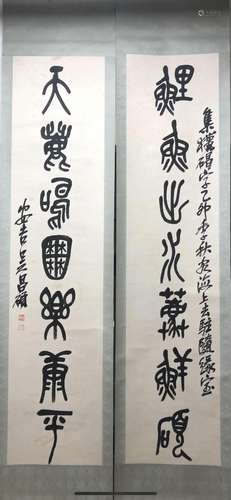 鯉魚出水鮮碩
集獵碣字乙卯季秋客海上去駐隨緣室
天鳴囿樂康平
安吉吳昌碩